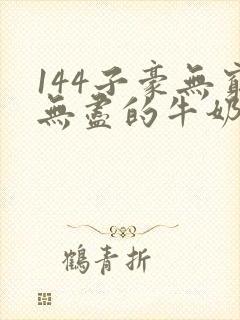 144子豪無窮
無盡的牛奶
鶴青折